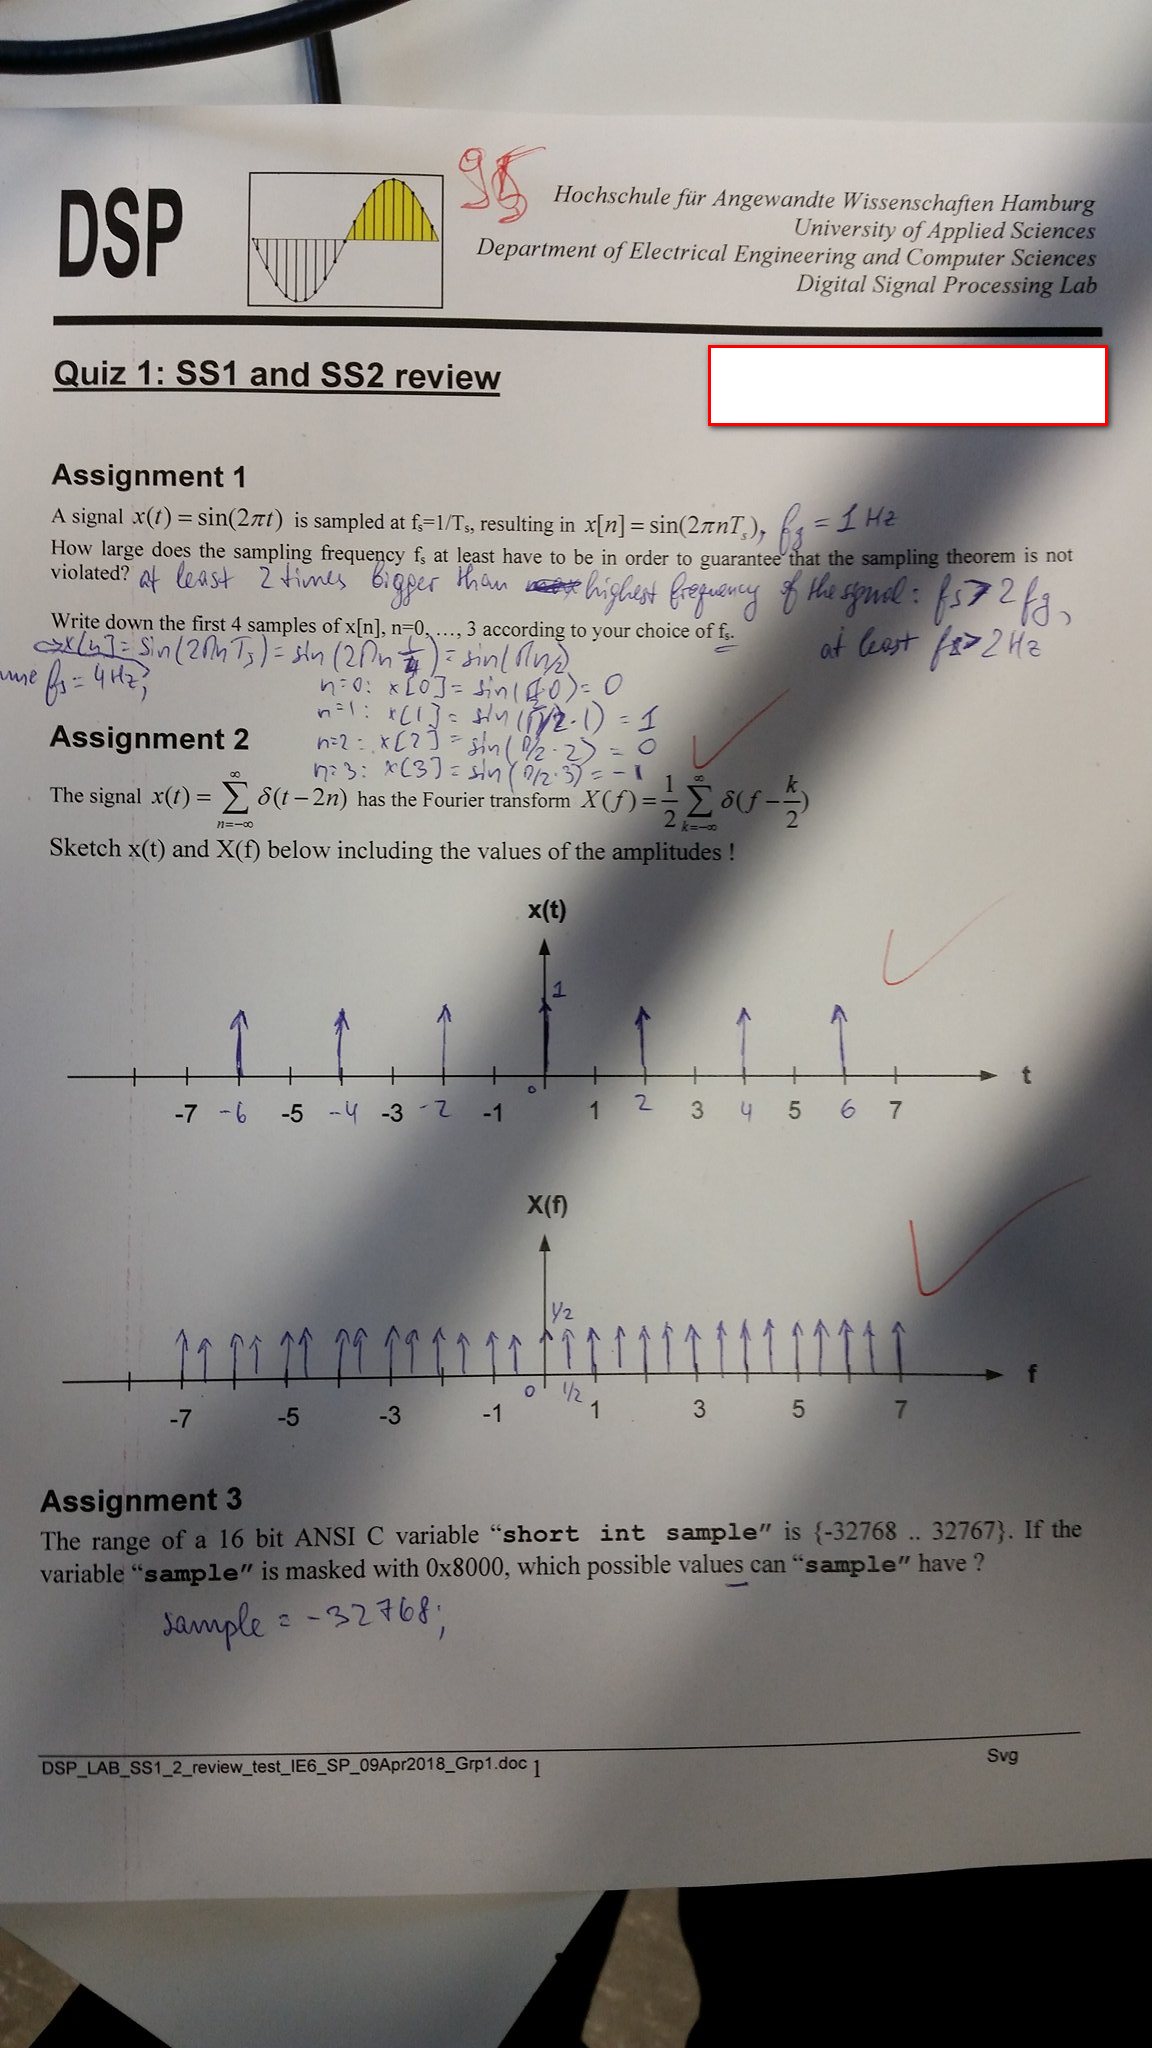 DSP
95
Hochschule für Angewandte Wissenschaften Hamburg
University of Applied Sciences
Department of Electrical Engineering and Computer Sciences
Digital Signal Processing Lab
Quiz 1: SS1 and SS2 review
Assignment 1
A signal x(t) = sin(2πt) is sampled at fs=1/Ts, resulting in x[n] = sin(2πnTs), fg = 1 Hz
How large does the sampling frequency fs at least have to be in order to guarantee that the sampling theorem is not
violated? at least 2 times bigger than highest frequency of the signal: fs > 2 fg,
Write down the first 4 samples of x[n], n=0, …, 3 according to your choice of fs. at least fs > 2 Hz
x[n] = sin(2πnTs) = sin(2πn 1/4) = sin(πn/2)
fs = 4 Hz;
n=0: x[0] = sin(π/2·0) = 0
n=1: x[1] = sin(π/2·1) = 1
n=2: x[2] = sin(π/2·2) = 0
n=3: x[3] = sin(π/2·3) = -1
Assignment 2
The signal x(t) = ∑_{n=-∞}^{∞} δ(t − 2n) has the Fourier transform X(f) = 1/2 ∑_{k=-∞}^{∞} δ(f − k/2)
Sketch x(t) and X(f) below including the values of the amplitudes !
x(t)
1
0
t
-7 -6 -5 -4 -3 -2 -1 1 2 3 4 5 6 7
X(f)
1/2
f
0 1/2
-7 -5 -3 -1 1 3 5 7
Assignment 3
The range of a 16 bit ANSI C variable “short int sample” is {-32768 .. 32767}. If the
variable “sample” is masked with 0x8000, which possible values can “sample” have ?
sample = -32768;
DSP_LAB_SS1_2_review_test_IE6_SP_09Apr2018_Grp1.doc 1 Svg